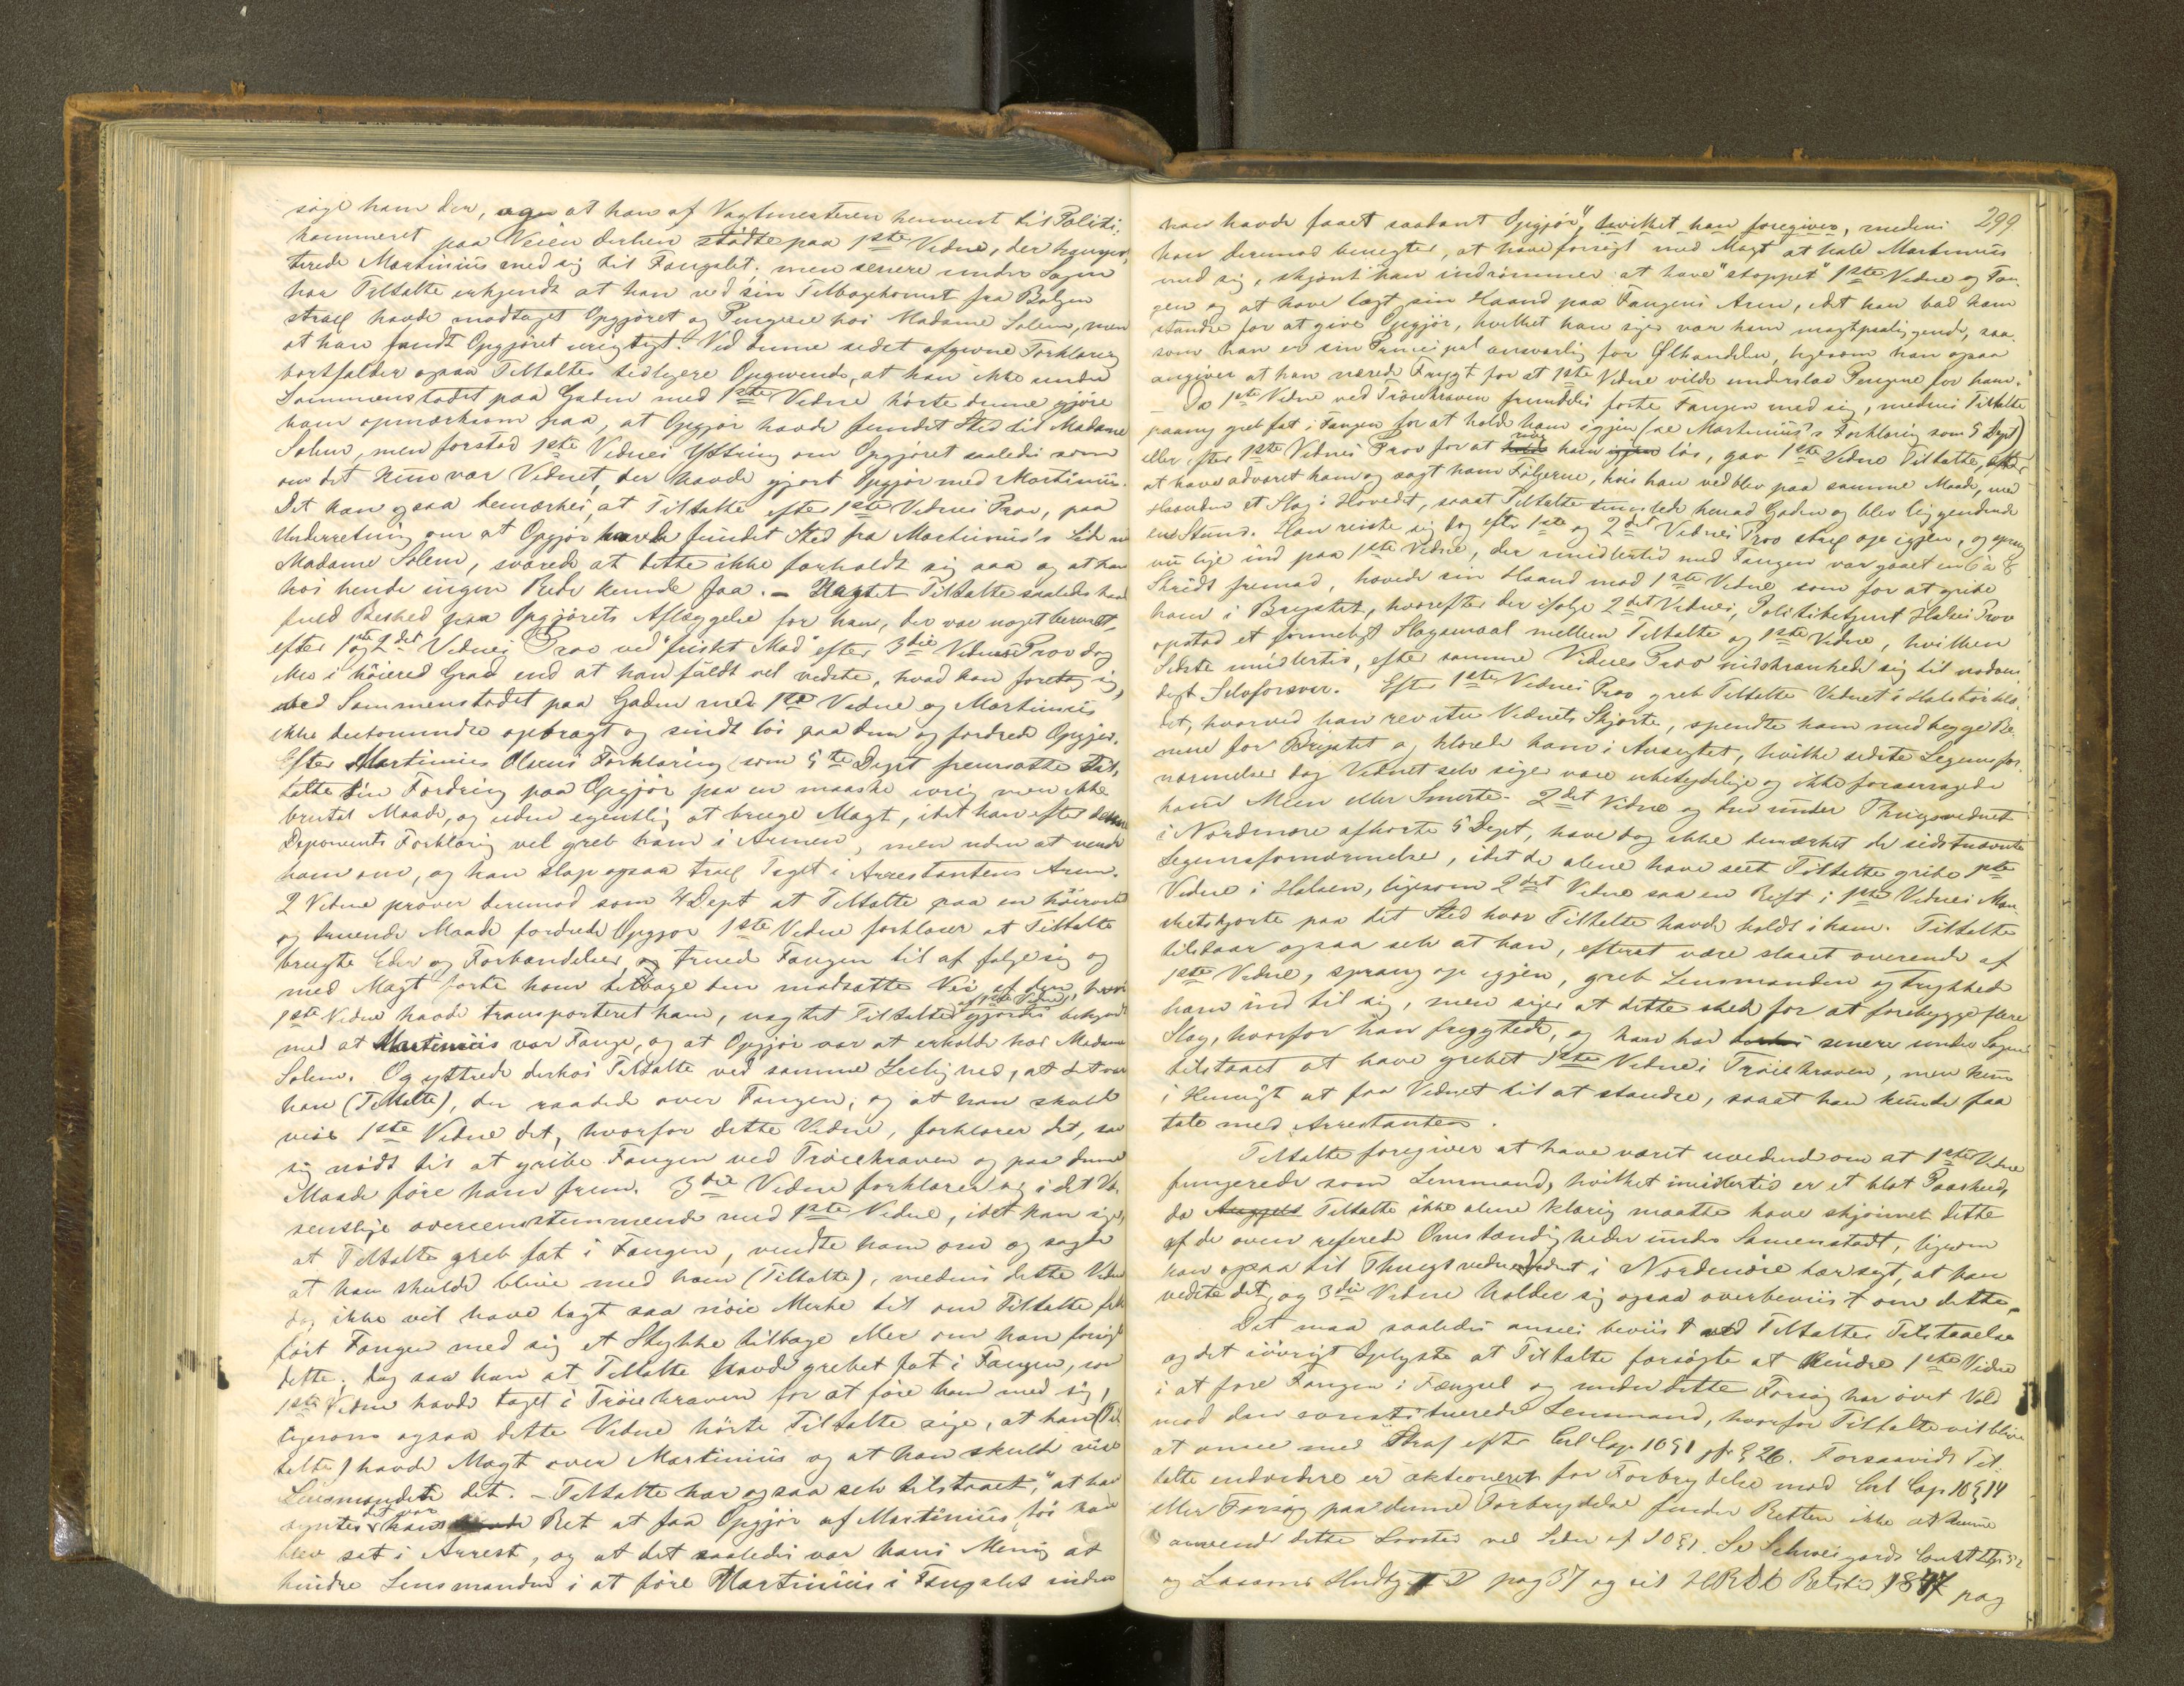 søge ham der, at han af Vagtmesteren henvist til Politi-
kammeret paa Veien derhen stødte paa 1ste Vidne, der
terede Martinius med sig til Fængslet; men senere under Sagen
har Tiltalte erkjendt at han ved sin Tilbagekomst fra
strax havde modtaget Opgjøret og Pengene hos Madame Solem, men
at han fandt Opgjøret urigtigt. Ved denne sidst afgivne Forklaring
bortfalder ogsaa Tiltaltes tidligere Opgivende, at han ikke under
Sammenstødet paa Gaden med 1ste Vidne hørte denne gjøre
ham opmærksom paa, at Opgjør havde fundet Sted til Madame
Solem, men forstod 1ste Vidnes Yttring om Opgjøret saaledes som
om det kun var Vidnet, der havde gjort Opgjør med Martinius.
Det kan ogsaa bemærkes, at Tiltalte efter 1ste Vidnes Prov, paa
Underretning om at Opgjør havde fundet Sted fra Martinius's Side til
Madame Solem, svarede at dette ikke forholdt sig saa og at han
hos hende ingen Rede kunde faa. – Uagtet Tiltalte saaledes havde
fuld Besked paa Opgjørets Aflæggelse for ham, der var noget beruset,
efter 1ste og 2det Vidnes Prov ved "friskt Mod" efter 3die Vidnes Prov dog
ikke i høiere Grad end at han fuldt vel vidste, hvad han foretog sig,
ved Sammenstødet paa Gaden med 1ste Vidne og Martinius
ikke destomindre opbragt og sindt løs paa dem og fordrede Opgjør.
Efter Martinius Olsens Forklaring som 5te Dept fremsatte Til-
talte sin Fordring paa Opgjør paa en maaske ivrig men ikke
brutal Maade, og uden egentlig at bruge Magt, idet han efter denne
Deponents Forklaring vel greb ham i Armen, men uden at vende
ham om, og han slap ogsaa strax Taget i Arrestantens Arm.
2 Vidne prover derimod som 4 Dept at Tiltalte paa en høirøstet
og truende Maade fordrede Opgjør 1ste Vidne forklarer at Tiltalte
brugte Eder og Forbandelser, og truede Fangen til at følge sig og
med Magt førte ham tilbage den modsatte Vei af den, hvori
1ste Vidne havde transporteret ham, uagtet Tiltalte af 1ste Vidne gjordes bekjendt
med at Martinius var Fange, og at Opgjør var at erholde hos Madame
Solem. Og yttrede derhos Tiltalte ved samme Leilighed, at det var
han (Tiltalte), der raadede over Fangen, og at han skulde
vise 1ste Vidne det, hvorfor dette Vidne, forklarer det, saa
sig nødt til at gribe Fangen ved Trøiekraven og paa denne
Maade føre ham frem. 3die Vidne forklarer sig i det Væ-
sentlige overeensstemmende med 1ste Vidne, idet han siger,
at Tiltalte greb fat i Fangen, vendte ham om og sagde
at han skulde blive med ham (Tiltalte), medens dette Vidne
dog ikke vil have lagt saa nøie Mærke til om Tiltalte fik
ført Fangen med sig et Stykke tilbage eller om han forsøgte
dette; dog saa han at Tiltalte havde grebet fat i Fangen, som
1ste Vidne havde taget i Trøiekraven for at føre ham med sig,
ligesom ogsaa dette Vidne hørte Tiltalte sige, at han (Til-
talte) havde Magt over Martinius og at han skulde vise
Lensmanden det. – Tiltalte har ogsaa selv tilstaaet, "at han
syntes det var hans Ret at faa Opgjør af Martinius før han
blev sat i Arrest, og at det saaledes var hans Mening at
hindre Lensmanden i at føre Martinius i Fængslet inden
299
han havde faaet saadant Opgjør", hvilket han foregiver, medens
han derimod benegter, at have forsøgt med Magt at hale Martinius
med sig, skjønt han indrømmer at have "stoppet" 1ste Vidne og Fan-
gen og at have lagt sin Haand paa Fangens Arm, idet han bad ham
standse for at give Opgjør, hvilket han siger var ham magtpaaliggende, saa-
som han er sin Principal ansvarlig for Ølhandelen, ligesom han ogsaa
angiver at han nærede Frygt for at 1ste Vidne vilde underslaa Pengene for ham.
– Da 1ste Vidne ved Trøiekraven fremdeles førte Fangen med sig, medens Tiltalte
paany greb fat i Fangen for at holde ham igjen (se Martinius's Forklaring som 5 Dept)
eller efter 1ste Vidnes Prov for at rive ham løs, gav 1ste Vidne Tiltalte, efter
at have advaret ham og sagt ham Følgerne, hvis han vedblev paa samme Maade, med
Haanden et Slag i Hovedet, saaat Tiltalte tumlede henad Gaden og blev liggendende
en Stund. Han reiste sig dog efter 1ste og 2det Vidnes Prov strax op igjen, og sprang
nu lige ind paa 1ste Vidne, der imidlertid med Fangen var gaaet en 6 à 8
Skridt fremad, hævede sin Haand mod 1ste Vidne som for at gribe
ham i Brystet, hvorefter der ifølge 2det Vidnes, Politibetjent Halses Prov
opstod et formeligt Slagsmaal mellem Tiltalte og 1ste Vidne, hvilken
Sidste imidlertid, efter samme Vidnes Prov indskrænkede sig til nødven-
digt Selvforsvar. Efter 1ste Vidnes Prov greb Tiltalte Vidnet i Halstørklæ-
det, hvorved han rev itu Vidnets Skjorte, spendte ham med begge Be-
nene for Brystet og klorede ham i Ansigtet, hvilke sidste Legemsfor-
nærmelser dog Vidnet selv siger vare ubetydelige og ikke foraarsagede
ham Meen eller Smerte. 2det Vidne og den under Thingsvidnet
i Nordmøre afhørte 5 Dept, have dog ikke bemærket de sidstnævnte
Legemsfornærmelser, idet de alene have seet Tiltalte gribe 1ste
Vidne i Halsen, ligesom 2det Vidne saa en Rift i 1ste Vidnes Man-
chetskjorte paa det Sted hvor Tiltalte havde holdt i ham. Tiltalte
tilstaar ogsaa selv at han, efterat være slaaet overende af
1ste Vidne, sprang op igjen, greb Lensmanden og trykkede
ham ind til sig, men siger at dette skede for at forebygge flere
Slag, hvorfor han frygtede, og han har senere under Sagen
tilstaaet at have grebet 1ste Vidne i Trøiekraven, men kun
i Hensigt at faa Vidnet til at standse, saaat han kunde faa
tale med Arrestanten.
Tiltalte foregiver at have været uvidende om at 1ste Vidne
fungerede som Lensmand, hvilket imidlertid er et blot Paaskud,
da Tiltalte ikke alene klarlig maatte have skjønnet dette
af de oven referede Omstændigheder under Samenstødt, ligesom
han ogsaa til Thingsvidnet i Nordmøre har sagt, at han
vidste det, og 3die Vidne holder sig ogsaa overbeviist om dette.
Det maa saaledes ansees beviist ved Tiltaltes Tilstaaelse
og det iøvrigt Oplyste at Tiltalte forsøgte at hindre 1ste Vidne
i at føre Fangen i Fængsel og under dette Forsøg har øvet Vold
mod den constituerede Lensmand, hvorfor Tiltalte vil blive
at ansee med Straf efter Crl Cap. 10 § 1 jfr § 26. Forsaavidt Til-
talte endvidere er aktioneret for Forbrydelse mod Crl Cap 10 § 14
eller Forsøg paa denne Forbrydelse finder Retten ikke at kunne
anvende dette Lovsted ved Siden af 10 § 1. Se Schweigaards
og Lassons Hndbg pag 37 og til Retstid 1847 pag